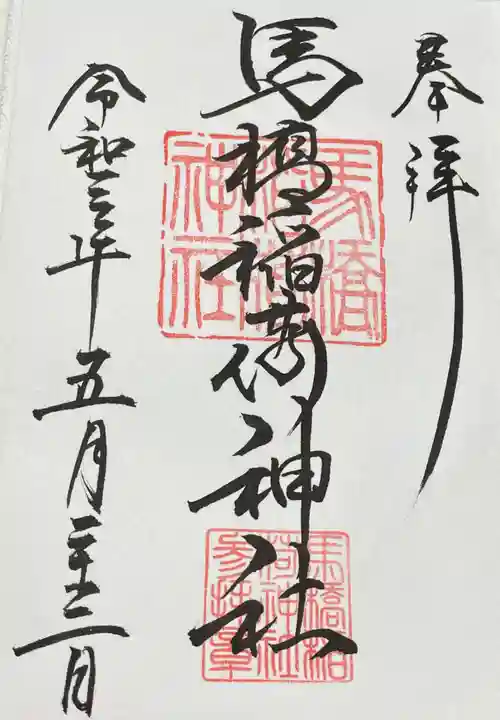 奉拝
馬橋稲荷神社
令和三年五月二十二日
馬橋稲荷神社
馬橋稲荷神社参拝章